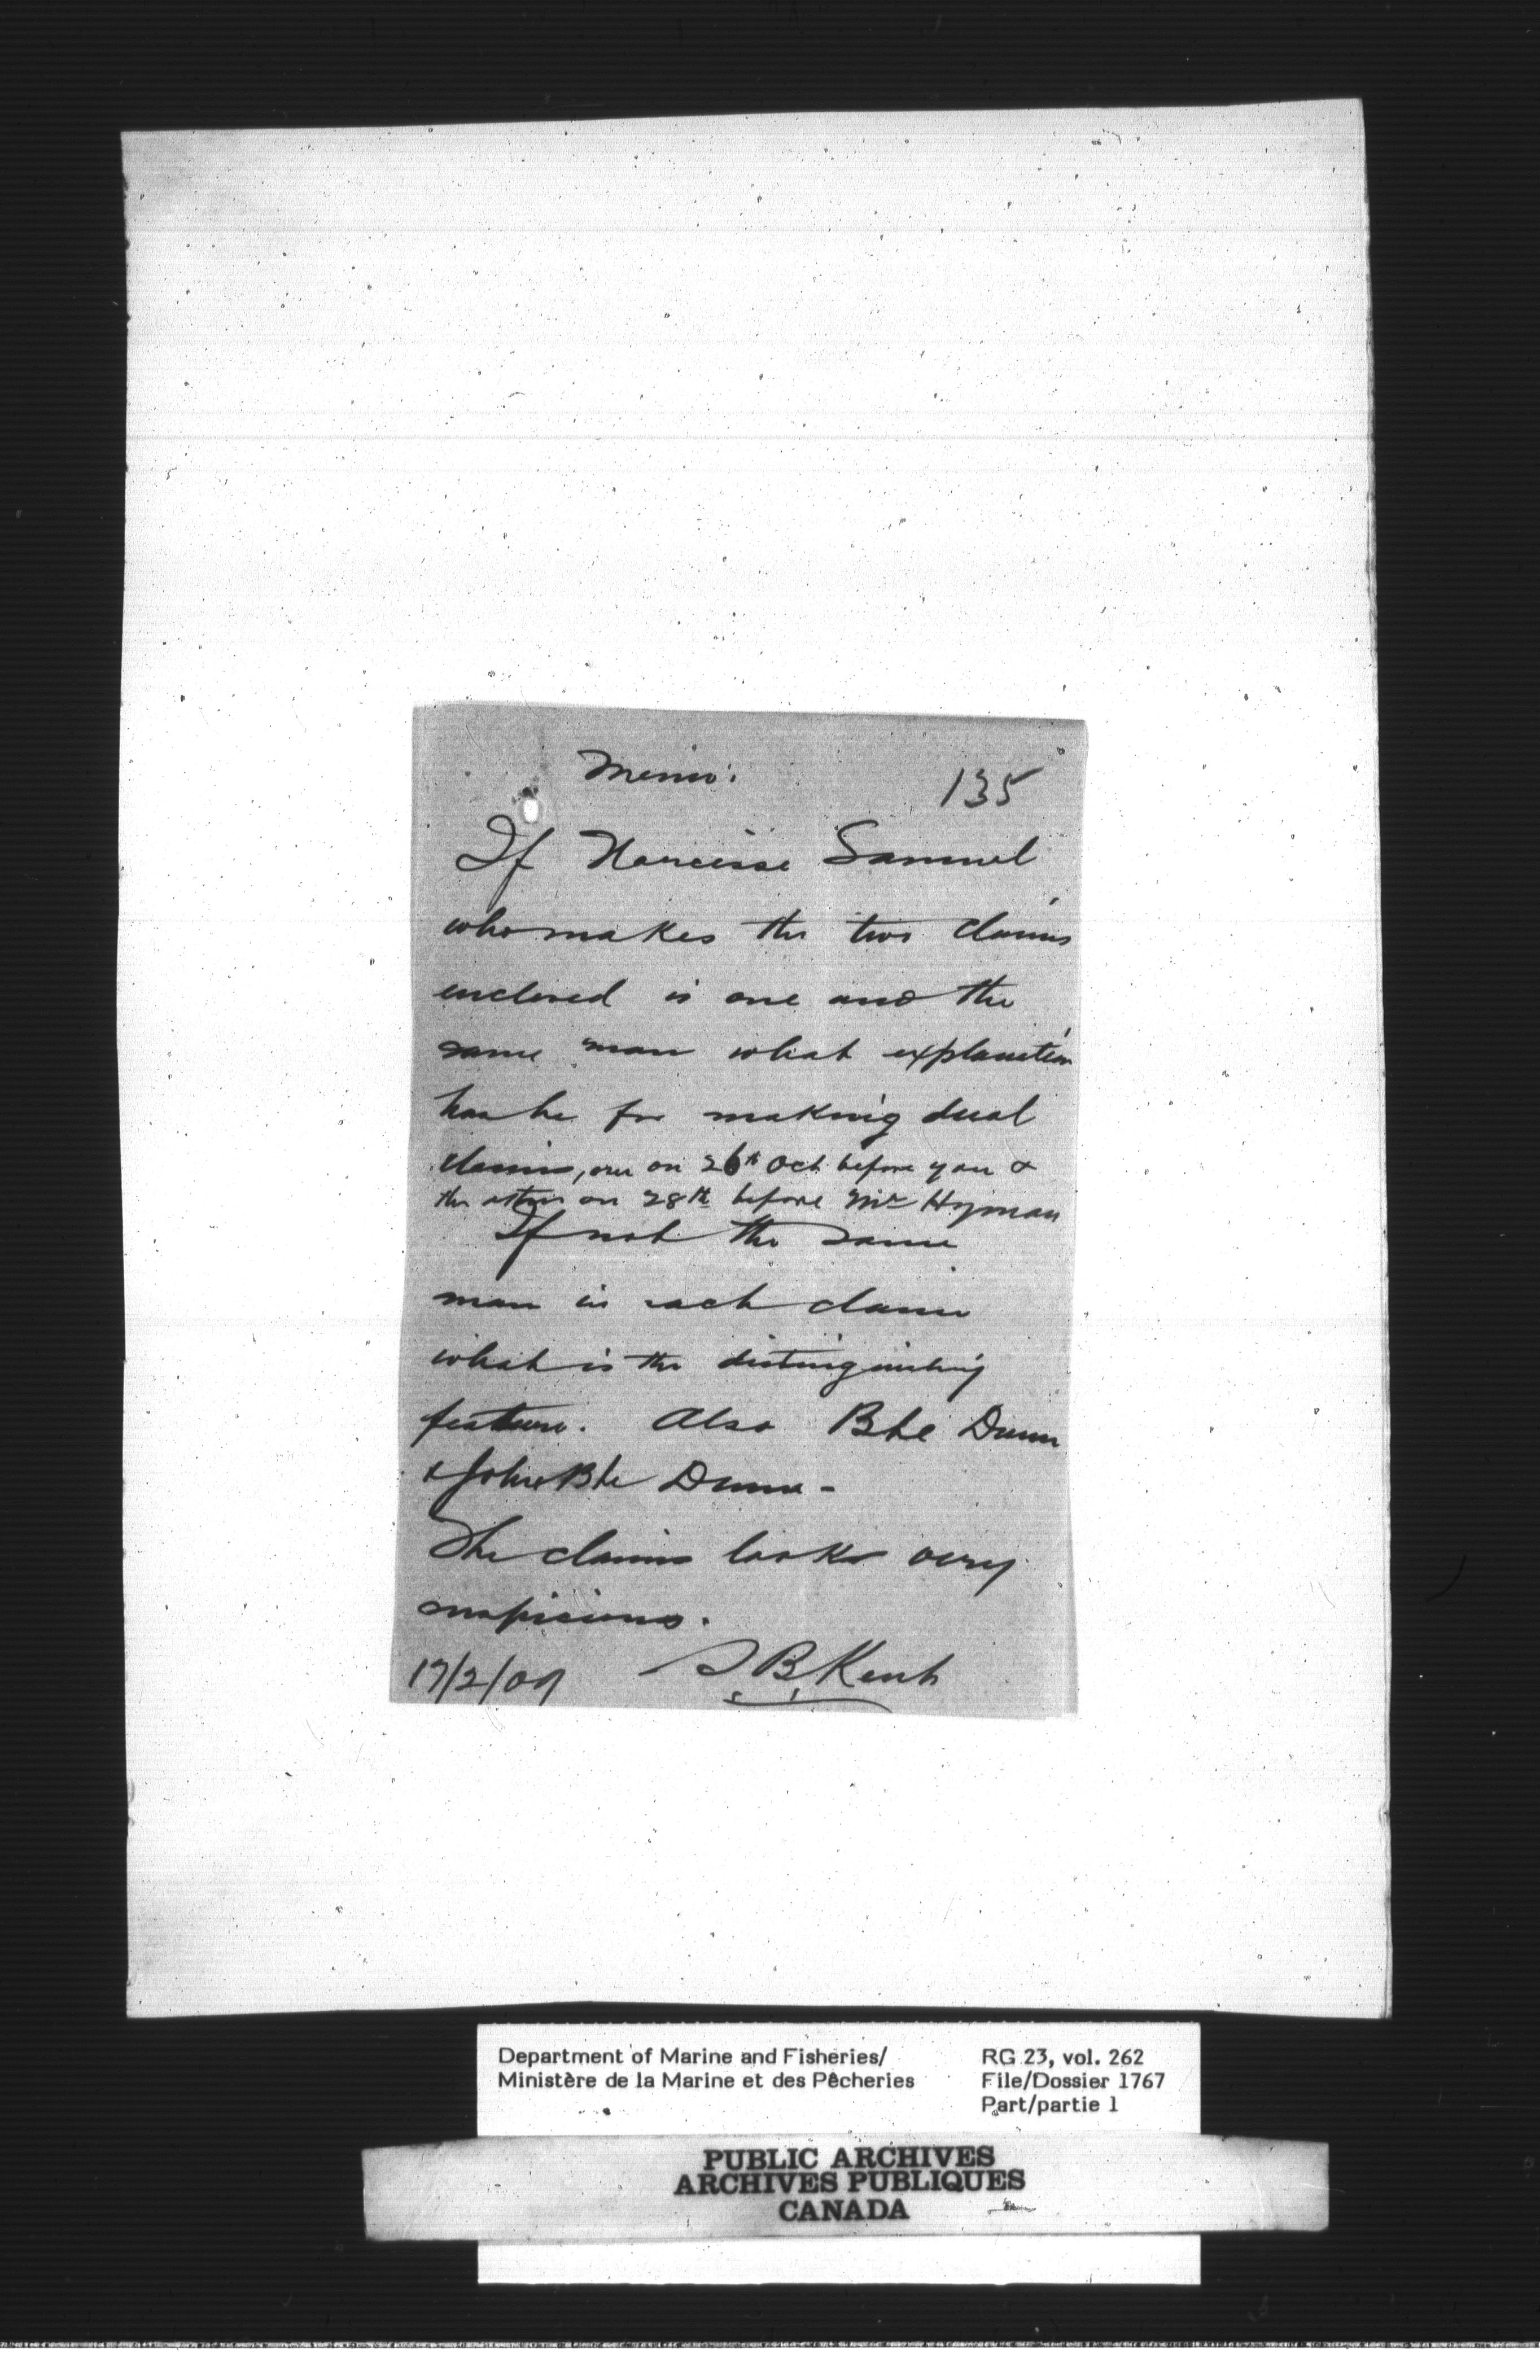 Memo:
135
If Narcisse Samuel
who makes the two claims
enclosed is one and the
same man what explanation
has he for making dual
claims, one on 26th Oct before you &
the other on 28th before Mr Hyman
If not the same
man in each claim
what is the distinguishing
feature. Also Bte Dunn
& John Bte Dunn -
The claims looks very
suspicious.
17/2/09 S B Kent
Department of Marine and Fisheries/
Ministère de la Marine et des Pêcheries
RG 23, vol. 262
File/Dossier 1767
Part/partie 1
PUBLIC ARCHIVES
ARCHIVES PUBLIQUES
CANADA